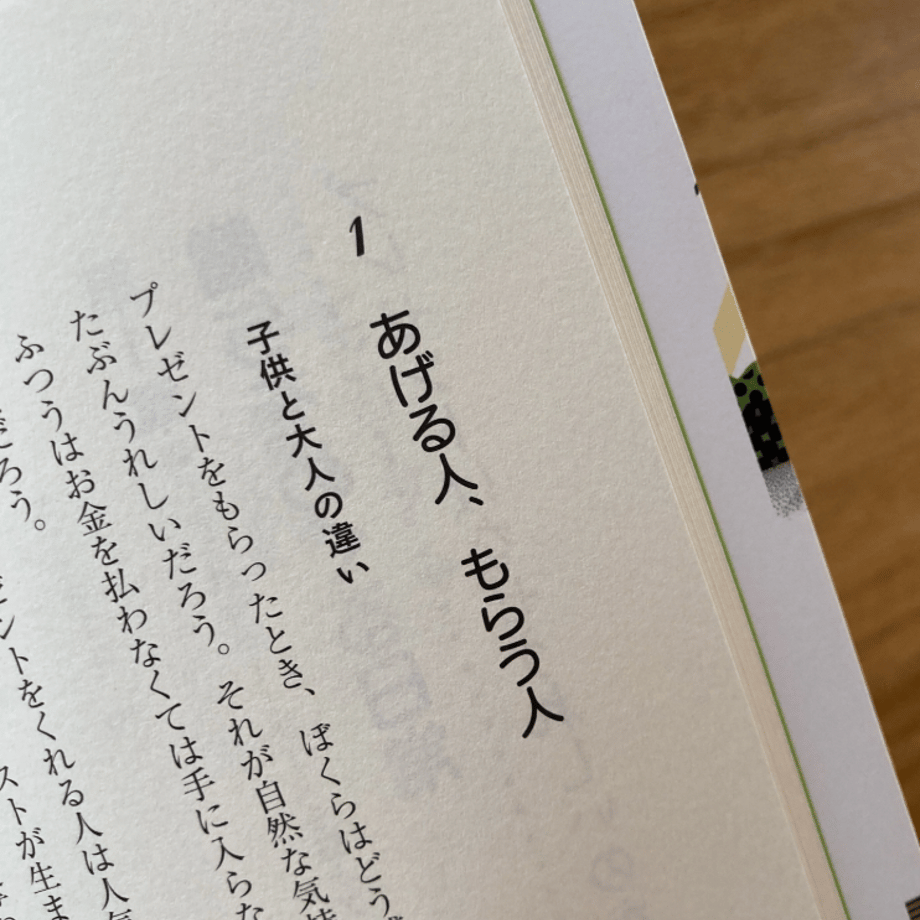 1
あげる人、もらう人
子供と大人の違い
プレゼントをもらったとき、ぼくらはどう
たぶんうれしいだろう。それが自然な気持
ふつうはお金を払わなくては手に入らな
だろう。
ントをくれる人は人気
ストが生ま